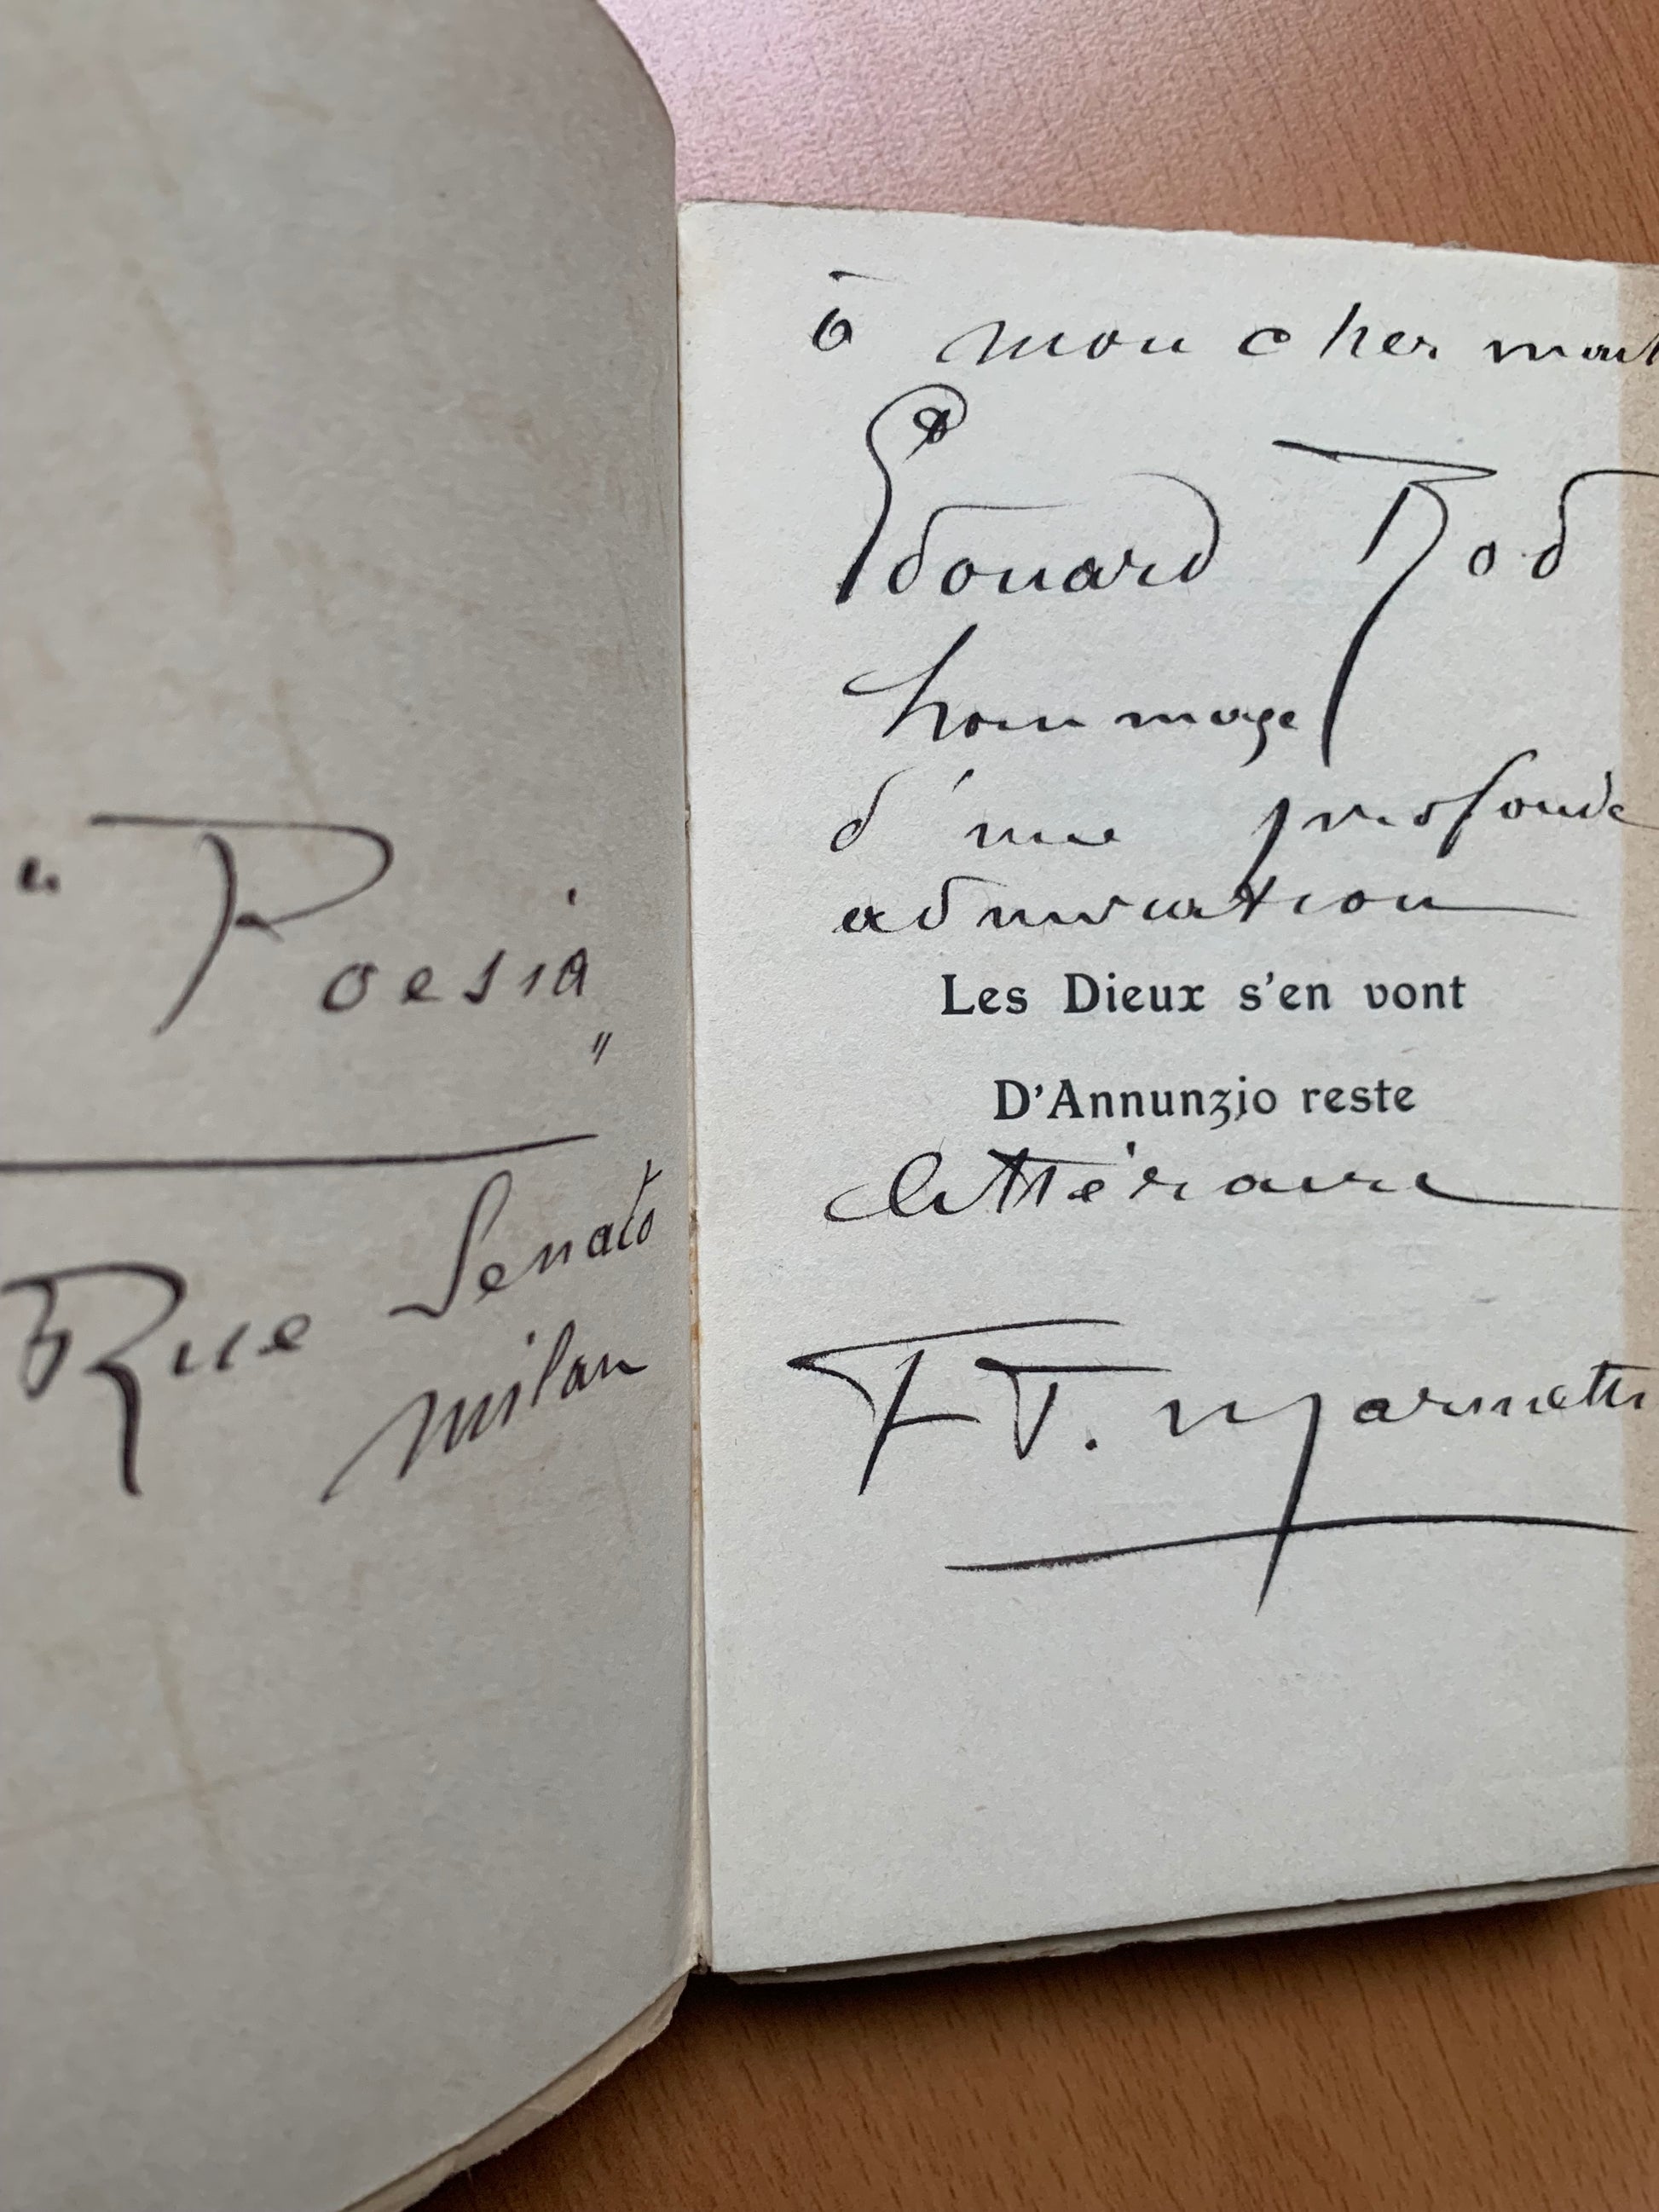 " Poesia "
Rue Senato
Milan
à mon cher
Édouard Rod
hommage
d'une profonde
admiration
Les Dieux s'en vont
D'Annunzio reste
littéraire
F. T. Marinetti